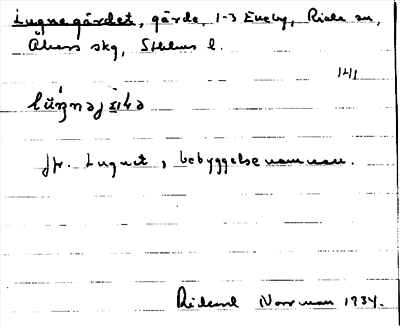 Lugnegärdet, gärde, 1-3 Eneby, Riala sn,
Åkers skg, Sthlms l.
141
Jfr. Lugnet, bebyggelsenamnan.
Norrman 1934.